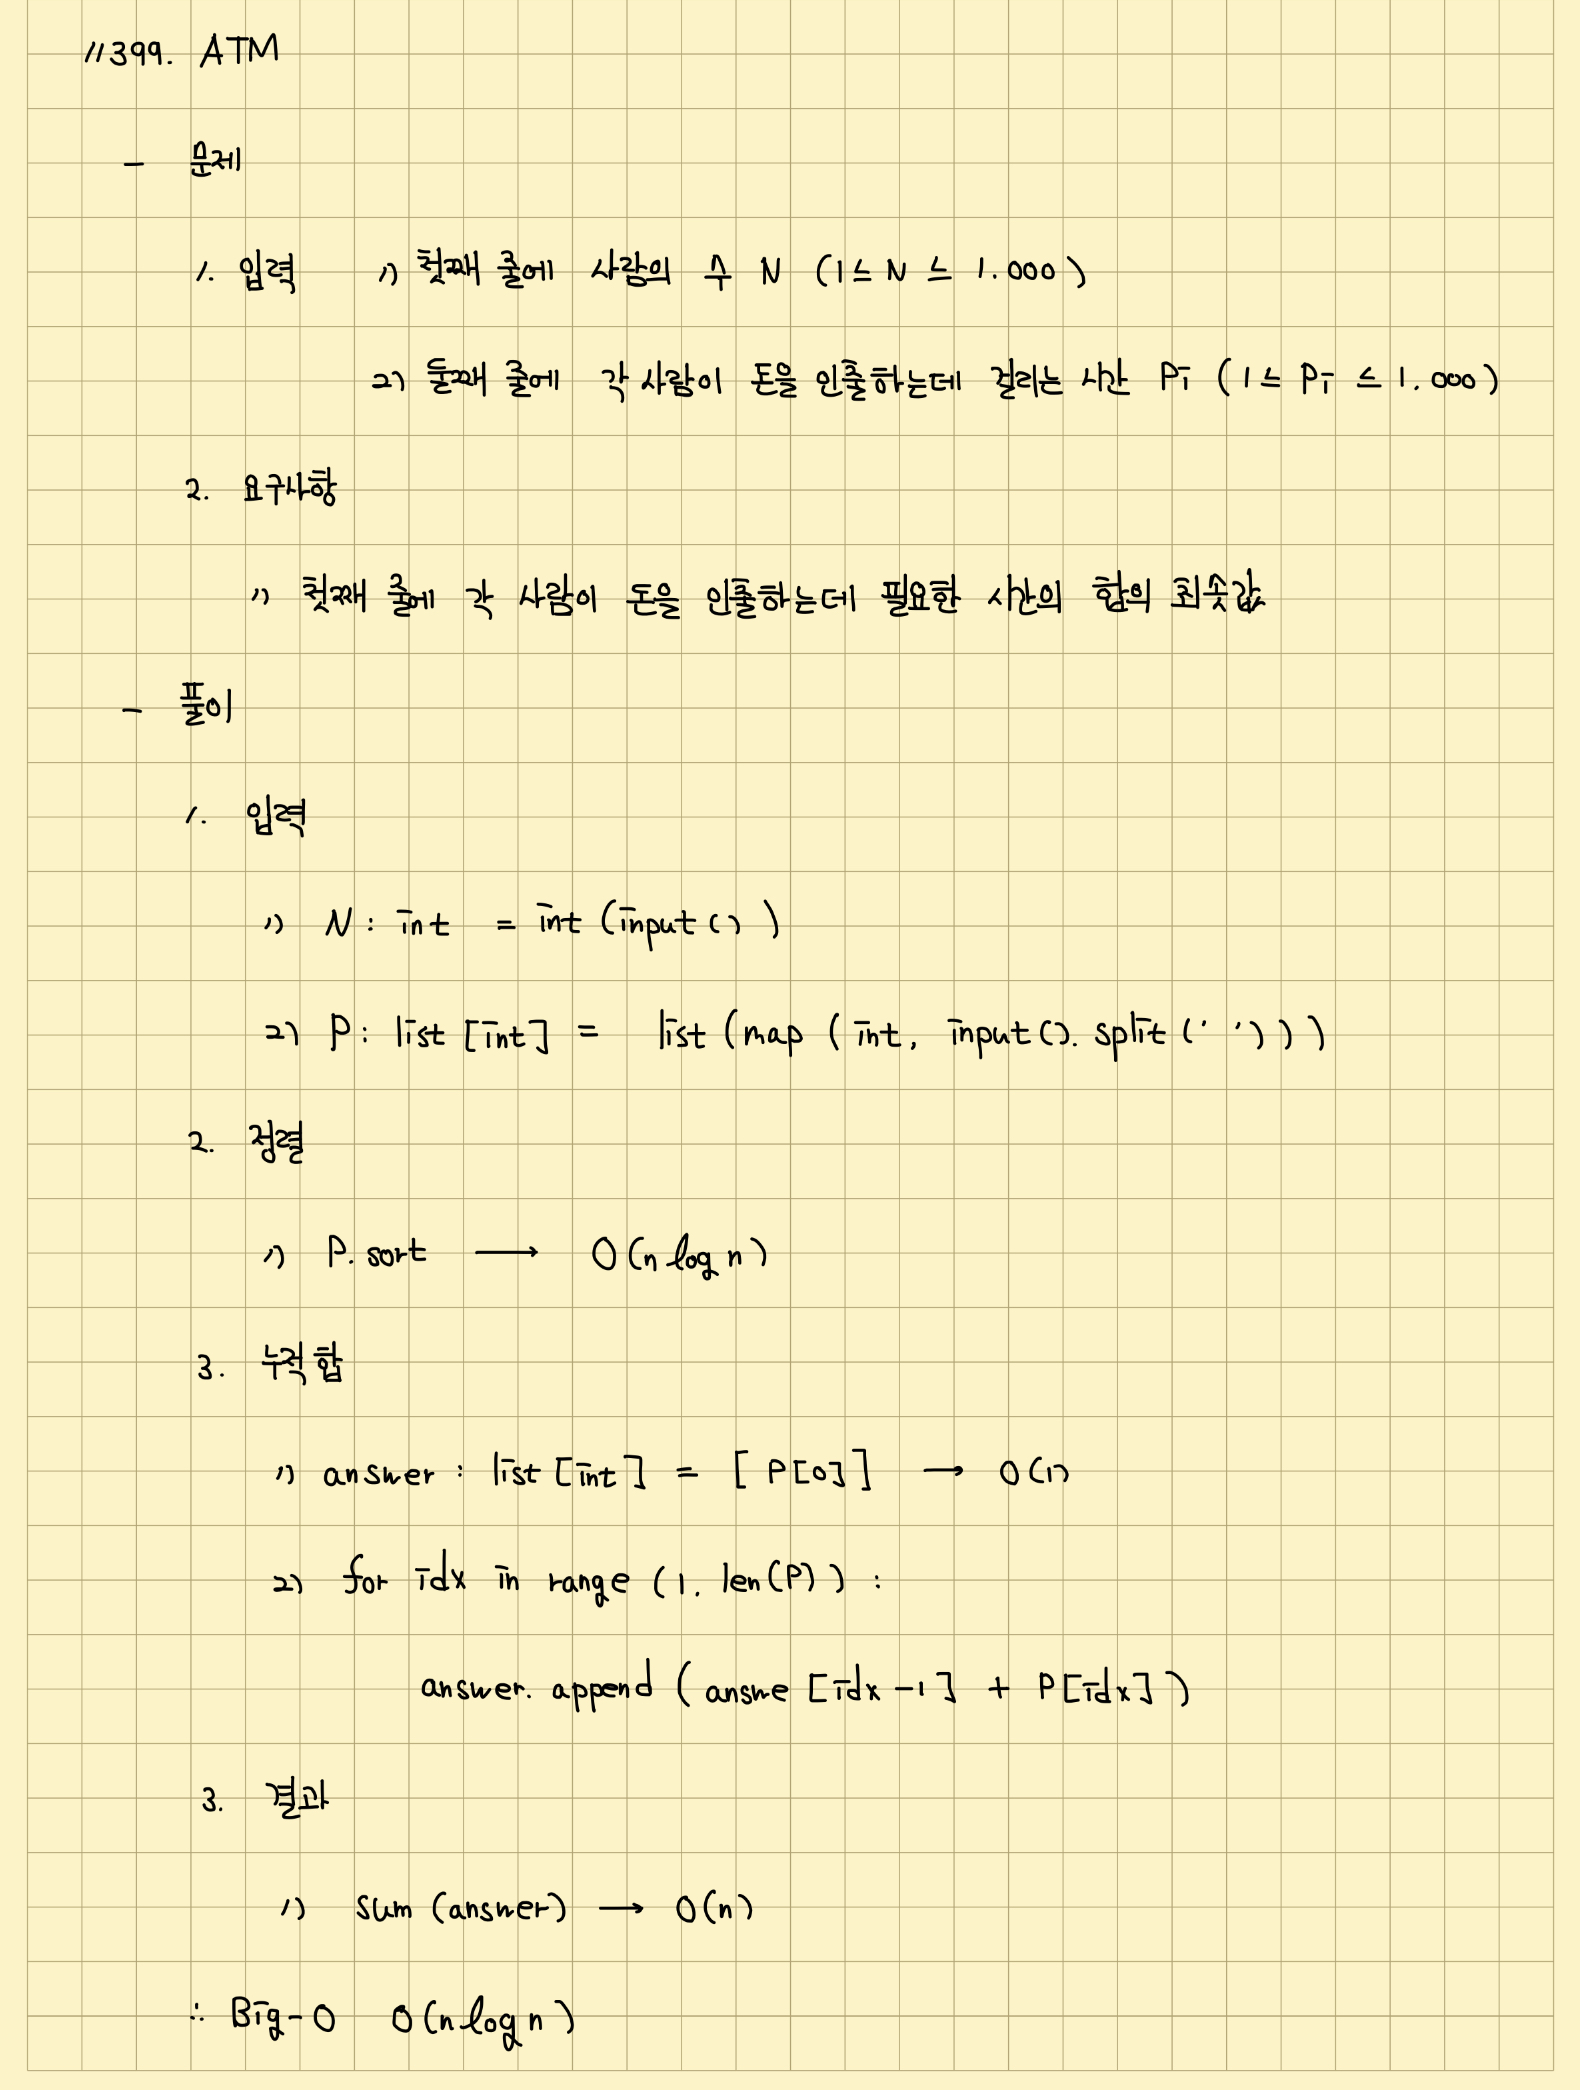 11399. ATM
- 문제
1. 입력 1) 첫째 줄에 사람의 수 N (1 ≤ N ≤ 1.000)
2) 둘째 줄에 각 사람이 돈을 인출하는데 걸리는 시간 Pi (1 ≤ Pi ≤ 1.000)
2. 요구사항
1) 첫째 줄에 각 사람이 돈을 인출하는데 필요한 시간의 합의 최솟값
- 풀이
1. 입력
1) N : int = int (input ( ) )
2) P : list [int] = list (map ( int, input(). split (' ') ) )
2. 정렬
1) P. sort → O(n log n)
3. 누적 합
1) answer : list [int] = [ P[0] ] → O(1)
2) for idx in range (1, len(P) ) :
answer. append ( answe [idx -1] + P[idx] )
3. 결과
1) sum (answer) → O(n)
∴ Big-O O(n log n)